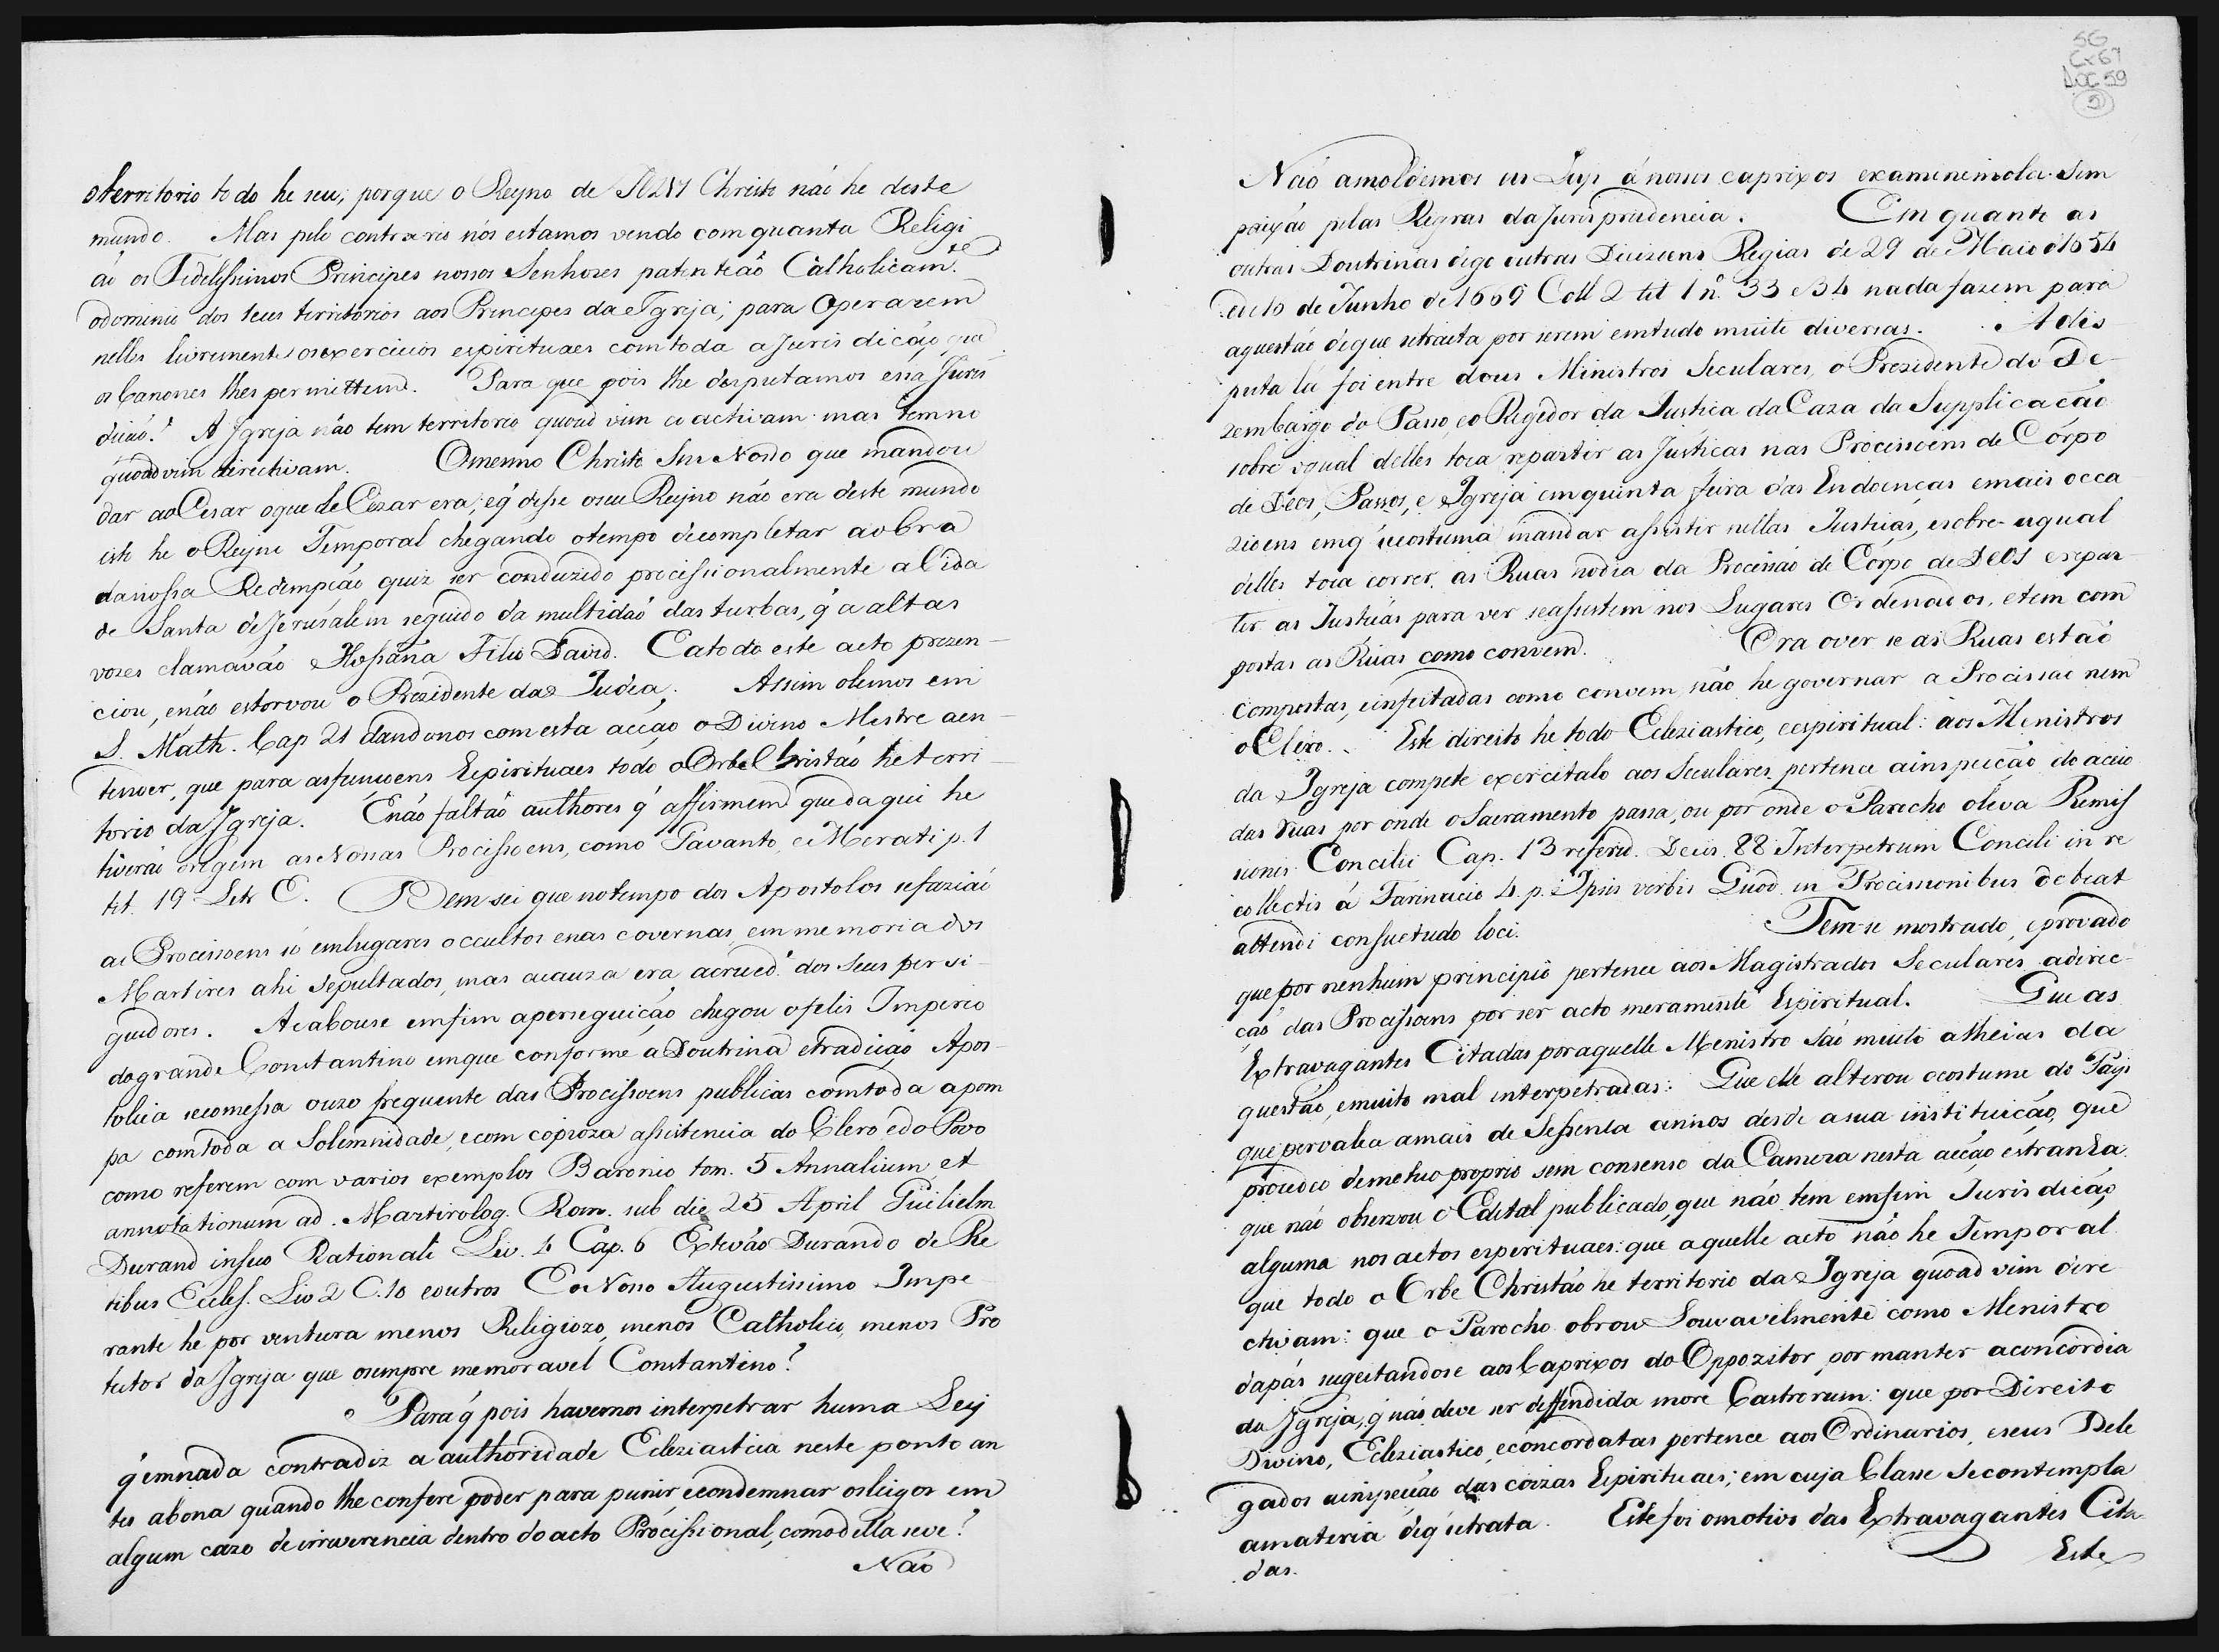 o territorio todo he seu; porque o Reyno de JEZUS Christo não he deste
mundo. Mas pelo contrario nós estamos vendo com quanta Religi
ão os Fidelissimos Principes nossos Senhores patenteão Catholicam.te
o dominio dos seus territorios aos Principes da Igreja; para operarem
nelles livremente os exercicios espirituaes com toda a Jurisdicáo que
os Canones lhes permittem. Para que pois lhe desputamos essa Juris
dicaó? A Igreja não tem territorio quoad vim coactivam mas tem no
quoad vim directivam. O mesmo Christo Snr Nosso que mandou
dar ao Cesar o que de Cezar era, e q' disse o seu Reyno não era deste mundo
isto he o Reyno Temporal chegando o tempo de completar a obra
da nossa Redempção quiz ser conduzido procissionalmente a Cida
de Santa de Jerusalem seguido da multidaó das turbas, q' a altas
vozes clamavão Hossana Filio David. E a todo este acto prezen-
ciou, enão estorvou o Prezidente da Judea. Assim o lemos em
S. Math. Cap 21 dandonos com esta acção o Divino Mestre a en-
tender, que para as funcoens Espirituaes todo o Orbe Christão he terri-
torio da Igreja. E não faltão authores q' affirmem que daqui he
tiverão origem as Nossas Procissoens, como Gavanto, e Merati p. 1
tit. 19 Letr E. Bem sei que no tempo dos Apostolos se faziaó
as Procissoens só em lugares occultos e nas covernas, em memoria dos
Martires ahi sepultados, mas a cauza era a crued.e dos seus persi-
guidores. Acabouse emfim a perseguicáo chegou o felis Imperio
do grande Constantino em que conforme a Doutrina e tradicáo Apos-
tolica se comessa o uzo frequente das Procissoens publicas com toda a pom
pa com toda a Solemnidade, e com copioza assistencia do Clero e do Povo
como referem com varios exemplos Baronio tom. 5 Annalium et
annotationum ad. Martirolog. Rom. sub die 25 April Guilielm
Durand in suo Rationali Liv. 4 Cap. 6 Extevão Durando de Re
tibus Eccles. Liv 2 C. 10 e outros E o Nosso Augustissimo Impe
rante he por ventura menos Religiozo, menos Catholico, menos Pro
tector da Igreja que o sempre memoravel Constantino?
Para q' pois havemos interpetrar huma Ley
q' em nada contradiz a authoridade Ecleziastica neste ponto an
tes abona quando lhe confere poder para punir e condemnar os leigos em
algum cazo de irreverencia dentro do acto Procissional, como della se ve?
Naó
SG
Cx 67
DOC 59
2
Naó amoldemos as Leys á nossos caprixos examinemola sem
paixáo pelas Regras da Juris prudencia. Em quanto as
outras Doutrinas digo outras Dicizoens Regias de 29 de Maio d'1654
e de 10 de Junho de 1669 Coll 2 tit 1 n.º 33 e 34 nada fazem para
a questáo de que se tracta por serem em tudo muito diversas. A dis
puta lá foi entre dous Ministros Seculares, o Prezidente do De-
zembargo do Passo, e o Regedor da Justica da Caza da Supplicacáo
sobre o qual delles toca repartir as Justicas nas Procissoens de Córpo
de Deos, Passos, e Igreja em quinta feira das Endoencas e mais occa
zioens em q' se costuma mandar assistir nellas Justicas, e sobre a qual
delles toca correr as Ruas no dia da Procissáo de Córpo de DEOS e repar-
tir as Justicas para ver se assistem nos Lugares Ordenados, e tem com
postas as Ruas como convem. Ora o ver se as Ruas estaó
compostas, e infeitadas como convem não he governar a Procissaó nem
o Clero. Este direito he todo Ecleziastico, e espiritual: aos Menistros
da Igreja compete exercitalo aos Seculares pertence a inspecção do aceio
das Ruas por onde o Sacramento passa, ou por onde o Parocho o leva Remis
siones Concilii Cap. 13 referid. Decis. 88 Interpetrum Concili in re
collectis á Farinacio 4. p. Ipsis verbis Quod in Procissionibus debeat
attendi consuetudo loci. Tem-se mostrado, e provado
que por nenhum principio pertence aos Magistrados Seculares a direc-
çaó das Procissoens por ser acto meramente Espiritual. Que as
Extravagantes Citadas por aquelle Menistro são muito alheias da
questaó, e muito mal interpetradas: Que elle alterou o costume do Pays
que pervalea a mais de Sessenta annos desde a sua instituicáo, que
procedeo de metuo proprio sem consenso da Camera nesta acção estranha
que naó observou o Edital publicado, que não tem emfim Jurisdicáo
alguma nos actos espirituaes: que aquelle acto não he Temporal
que todo o Orbe Christão he territorio da Igreja quoad vim dire
ctivam: que o Parocho obrou Louvavelmente como Menistro
da pás sugeitandose aos Caprixos do Oppozitor por manter a concordia
da Igreja, q' não deve ser deffendida more Castrorum: que por Direito
Divino, Ecleziastico, e concordatas pertence aos Ordinarios, e seus Dele
gados a inspecáo das coizas Espirituaes; em cuja Classe se contempla
a materia de q' se trata. Este foi o motivo das Extravagantes Cita
das.
Este